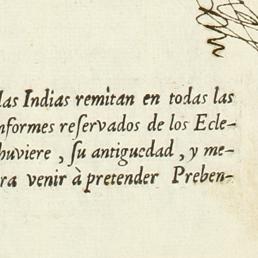 las Indias remitan en todas las
nformes reſervados de los Ecle-
huviere, ſu antiguedad, y me-
ra venir à pretender Preben-